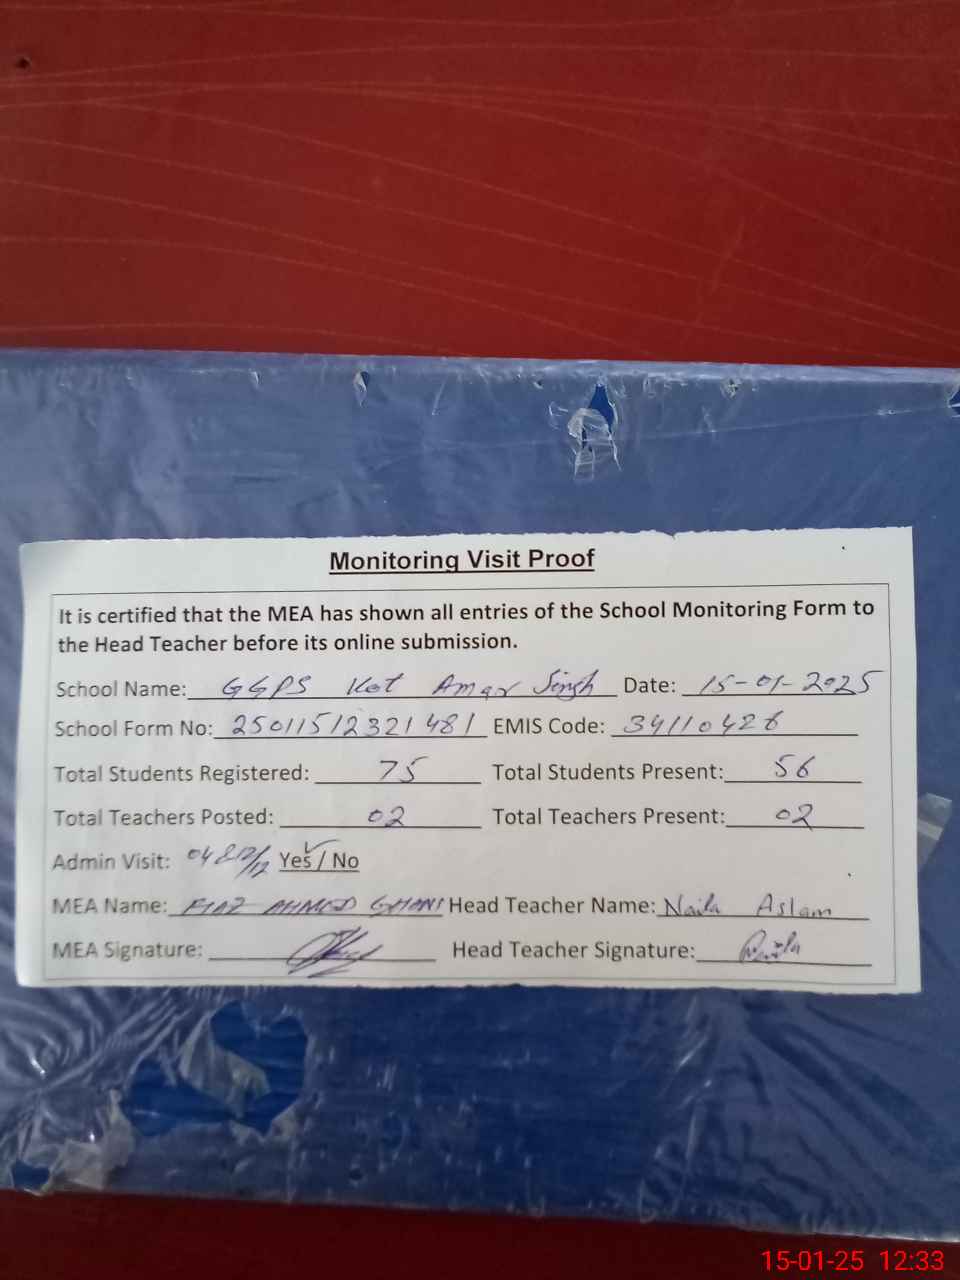 Monitoring Visit Proof
It is certified that the MEA has shown all entries of the School Monitoring Form to
the Head Teacher before its online submission.
School Name: GGPS Kot Amar Singh Date: 15-01-2025
School Form No: 25011512321481 EMIS Code: 34110426
Total Students Registered: 75 Total Students Present: 56
Total Teachers Posted: 02 Total Teachers Present: 02
Admin Visit: 04 &12/12 Yes / No
MEA Name: FIAZ AHMED GHANI Head Teacher Name: Naila Aslam
MEA Signature: Head Teacher Signature: Naila
15-01-25 12:33